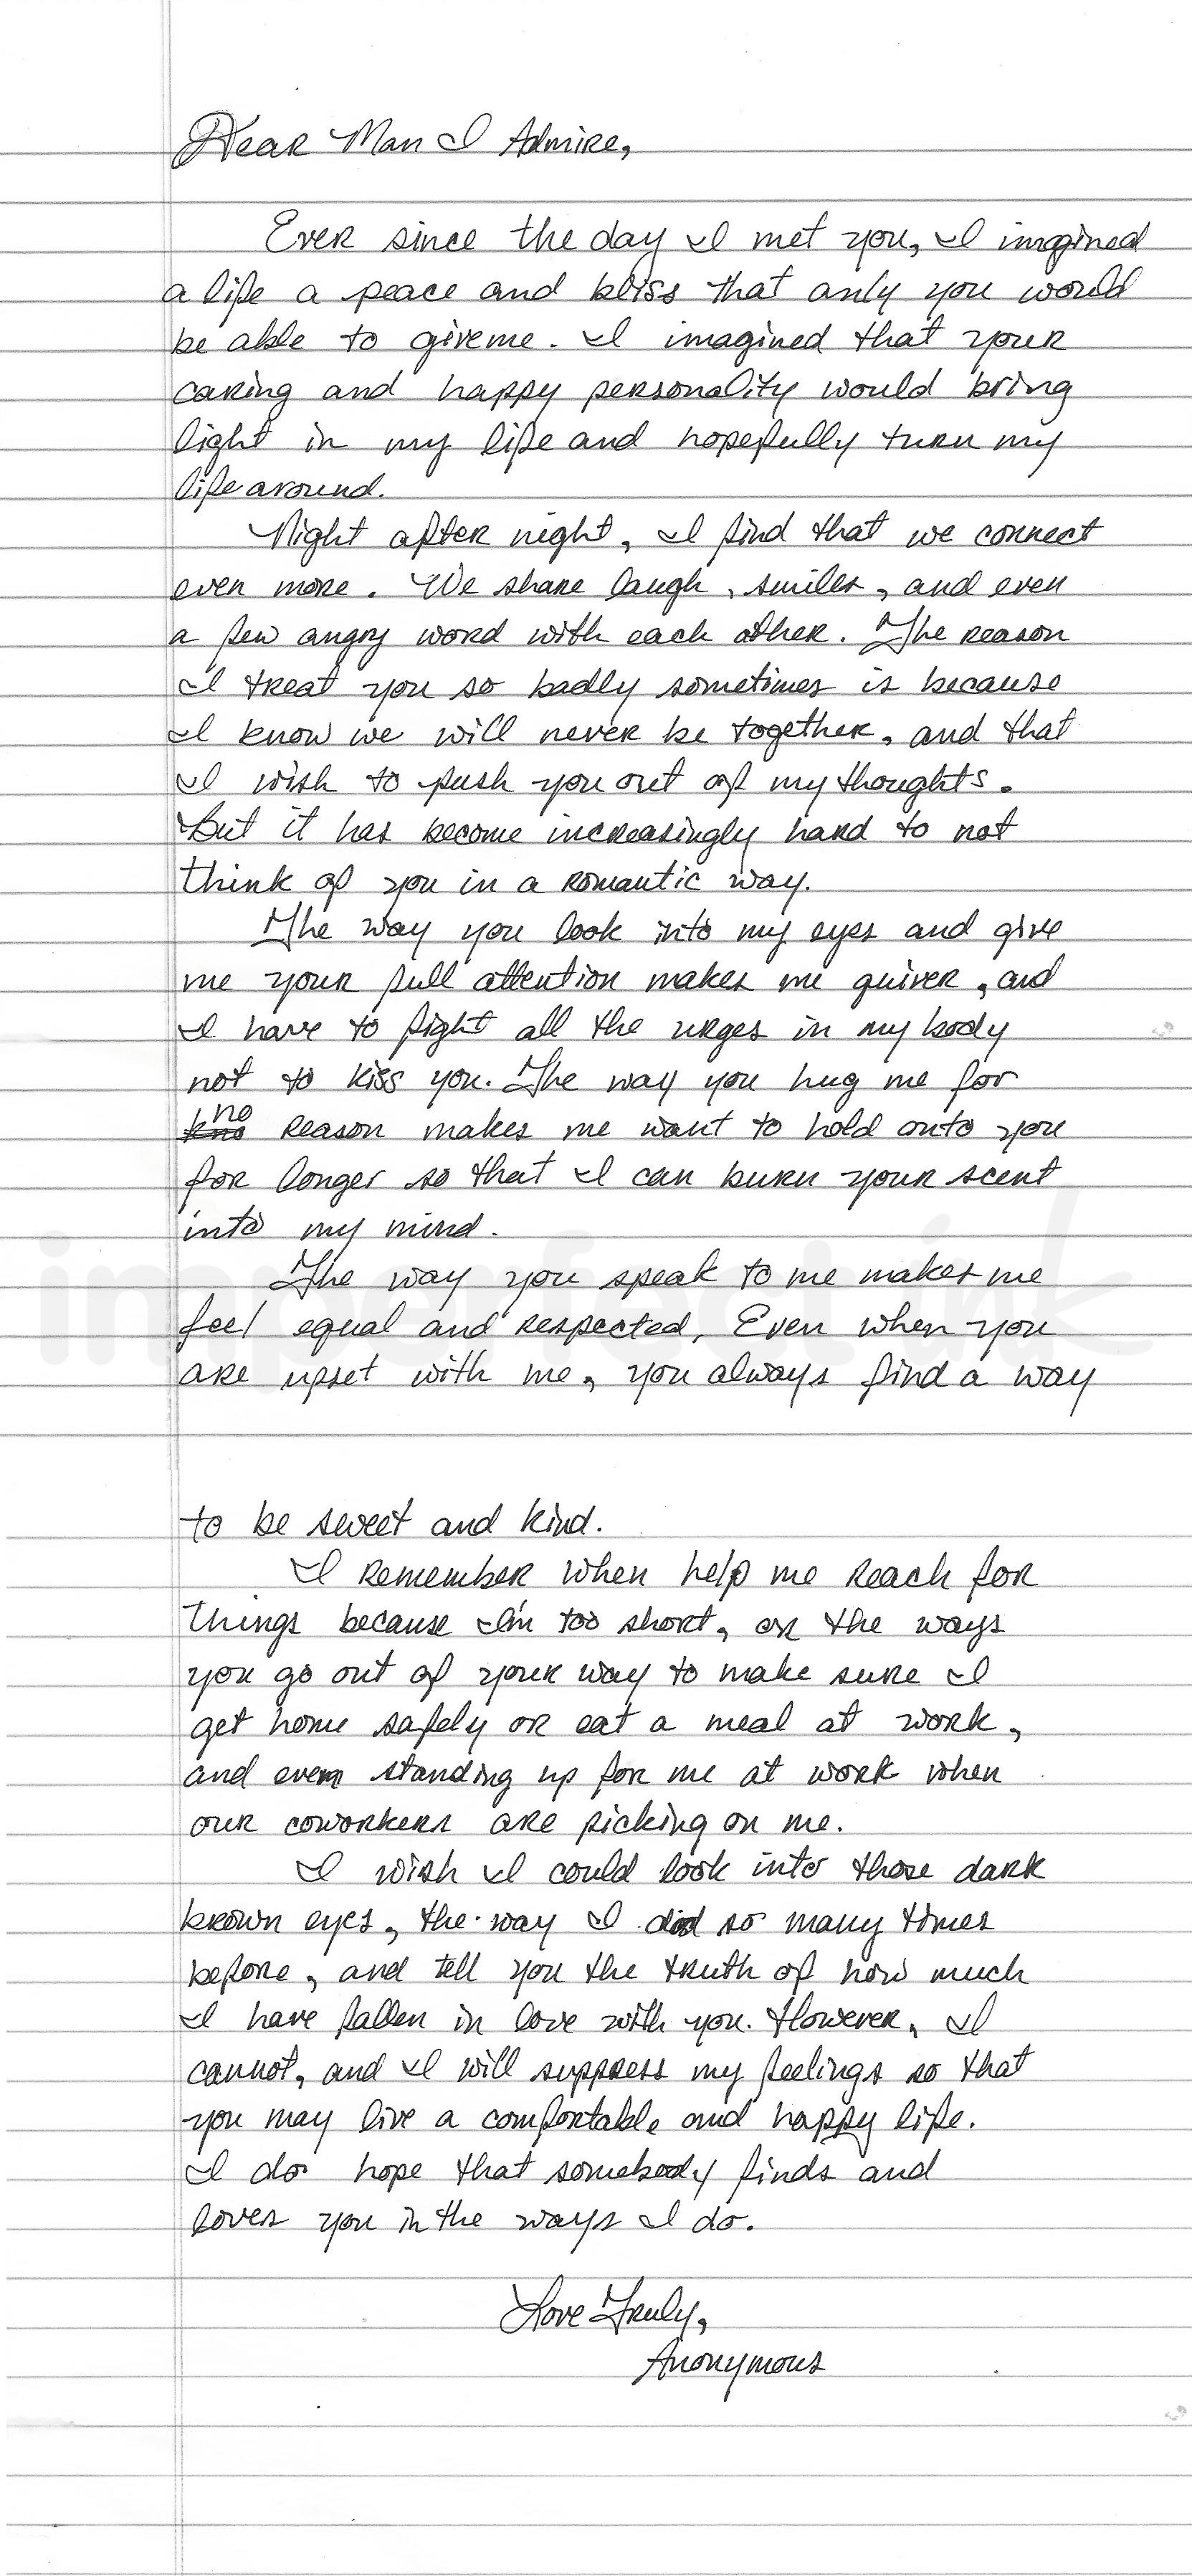 Dear Man I Admire,
Ever since the day I met you, I imagined
a life a peace and bliss that only you would
be able to give me. I imagined that your
caring and happy personality would bring
light in my life and hopefully turn my
life around.
Night after night, I find that we connect
even more. We share laugh, smiles, and even
a few angry word with each other. The reason
I treat you so badly sometimes is because
I know we will never be together, and that
I wish to push you out of my thoughts.
But it has become increasingly hard to not
think of you in a romantic way.
The way you look into my eyes and give
me your full attention makes me quiver, and
I have to fight all the urges in my body
not to kiss you. The way you hug me for
no reason makes me want to hold onto you
for longer so that I can burn your scent
into my mind.
The way you speak to me makes me
feel equal and respected. Even when you
are upset with me, you always find a way
imperfect ink
to be sweet and kind.
I remember when help me reach for
things because I'm too short, or the ways
you go out of your way to make sure I
get home safely or eat a meal at work,
and even standing up for me at work when
our coworkers are picking on me.
I wish I could look into those dark
brown eyes, the way I did so many times
before, and tell you the truth of how much
I have fallen in love with you. However, I
cannot, and I will suppress my feelings so that
you may live a comfortable and happy life.
I do hope that somebody finds and
loves you in the ways I do.
Love Truly,
Anonymous